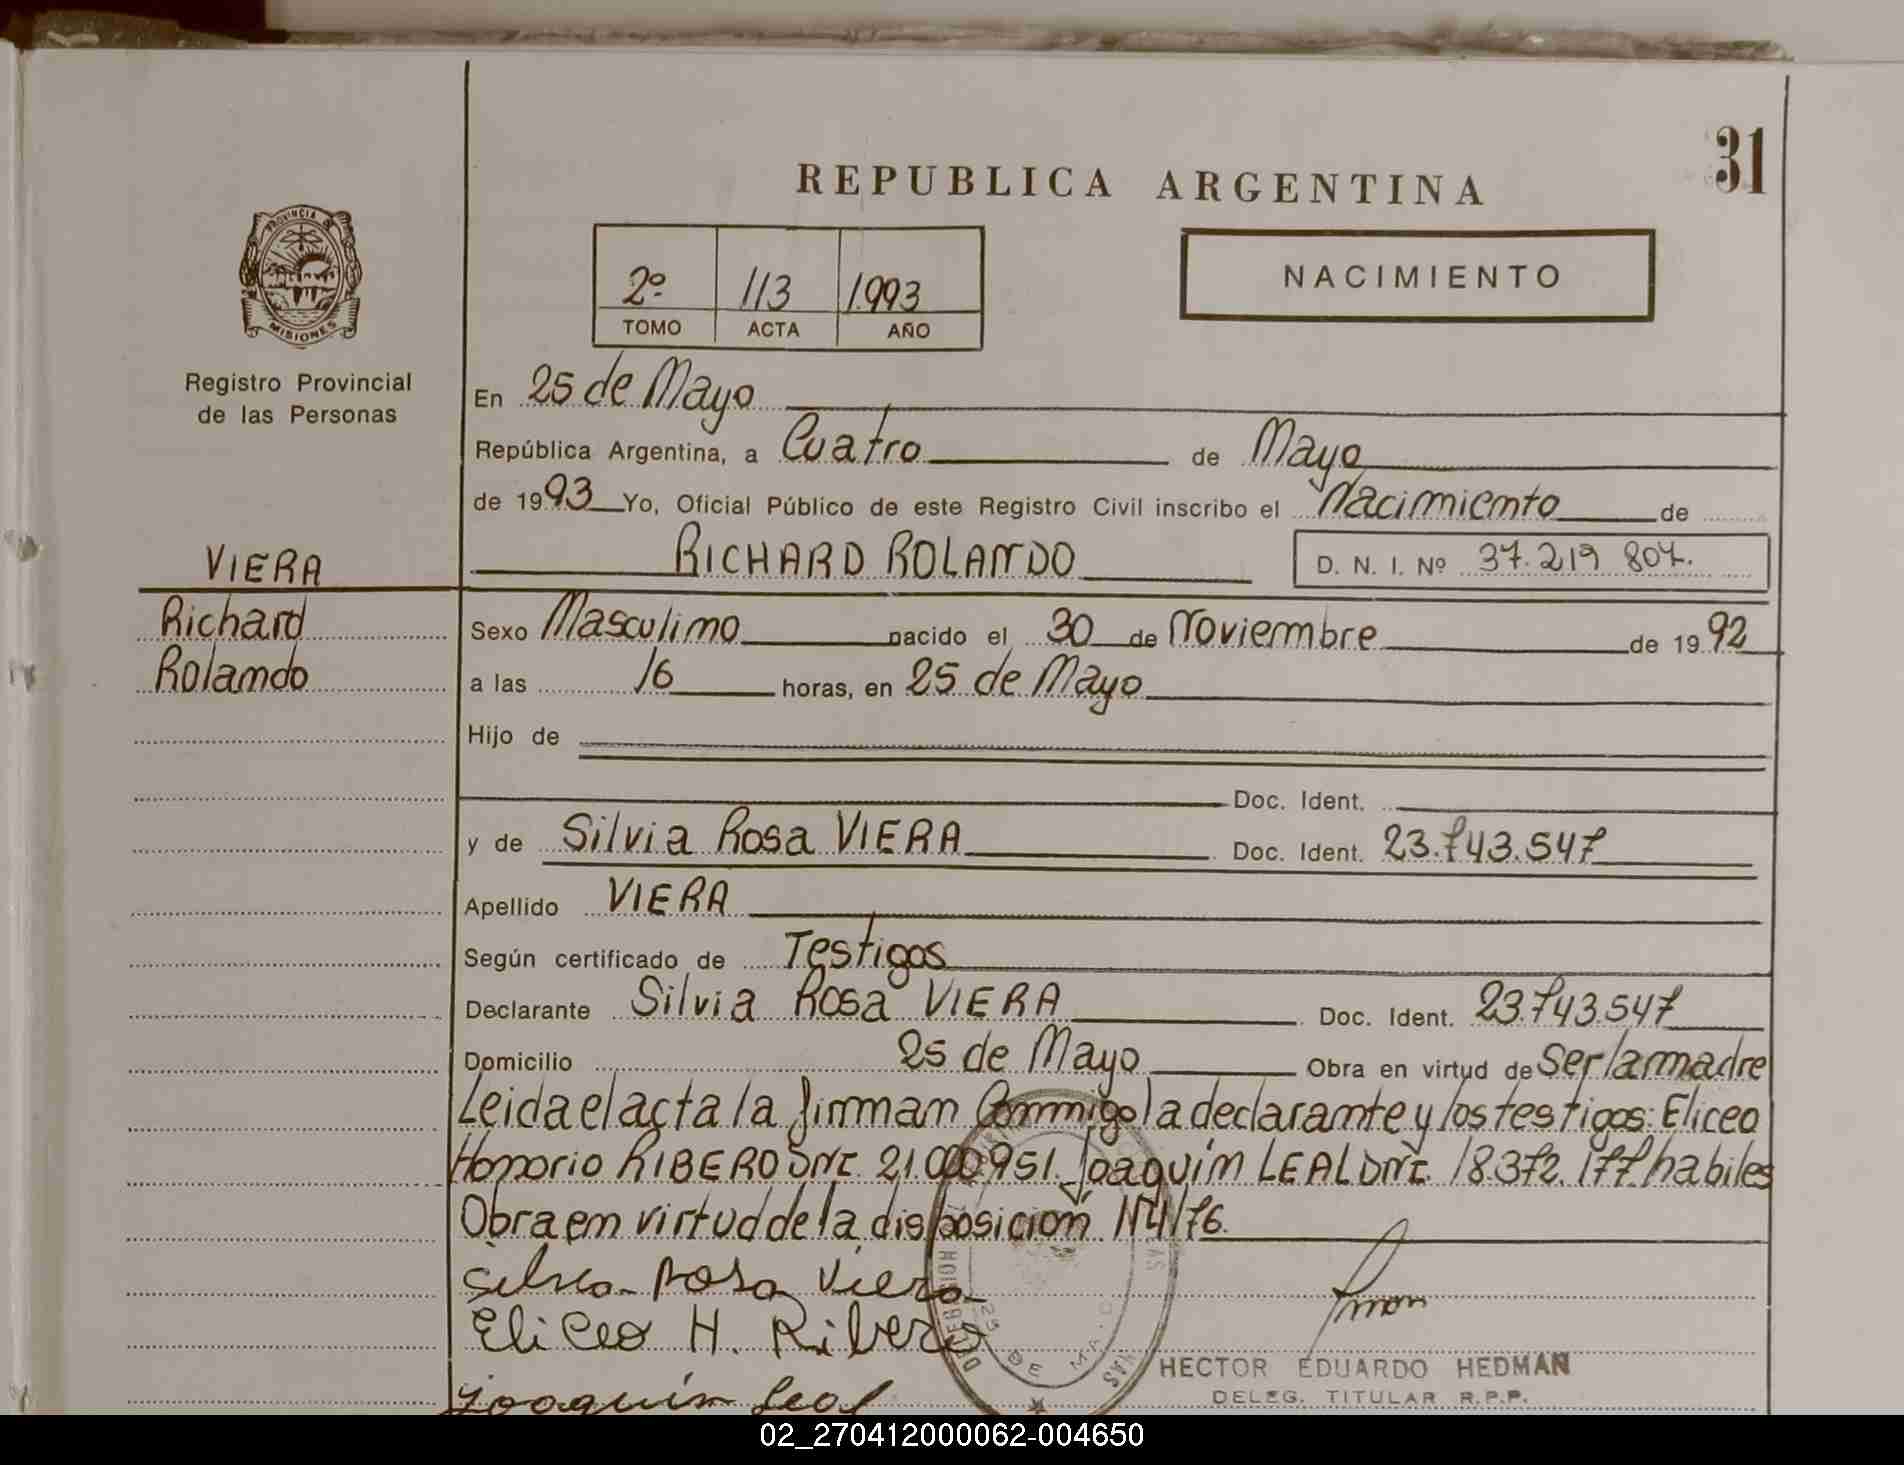 31
REPUBLICA ARGENTINA
PROVINCIA DE
MISIONES
2º 113 1.993
TOMO ACTA AÑO
NACIMIENTO
Registro Provincial
de las Personas
En 25 de Mayo
República Argentina, a Cuatro de Mayo
de 1993 Yo, Oficial Público de este Registro Civil inscribo el Nacimiento de
VIERA
RICHARD ROLANDO D. N. I. Nº 37.219 807.
Richard
Sexo Masculino nacido el 30 de Noviembre de 1992
Rolando
a las 16 horas, en 25 de Mayo
Hijo de
Doc. Ident.
y de Silvia Rosa VIERA Doc. Ident. 23.743.547
Apellido VIERA
Según certificado de Testigos
Declarante Silvia Rosa VIERA Doc. Ident. 23.743.547
Domicilio 25 de Mayo Obra en virtud de Ser la madre
Leida el acta la firman Conmigo la declarante y los testigos: Eliceo
Honorio RIBERO DNI. 21.000951. Joaquin LEAL DNI. 18.372.177. habiles
Obra en virtud de la disposición 114/76.
Silvia Rosa Viera
Eliceo H. Ribero
HECTOR EDUARDO HEDMAN
DELEG. TITULAR R.P.P.
Joaquín Leal
02_270412000062-004650